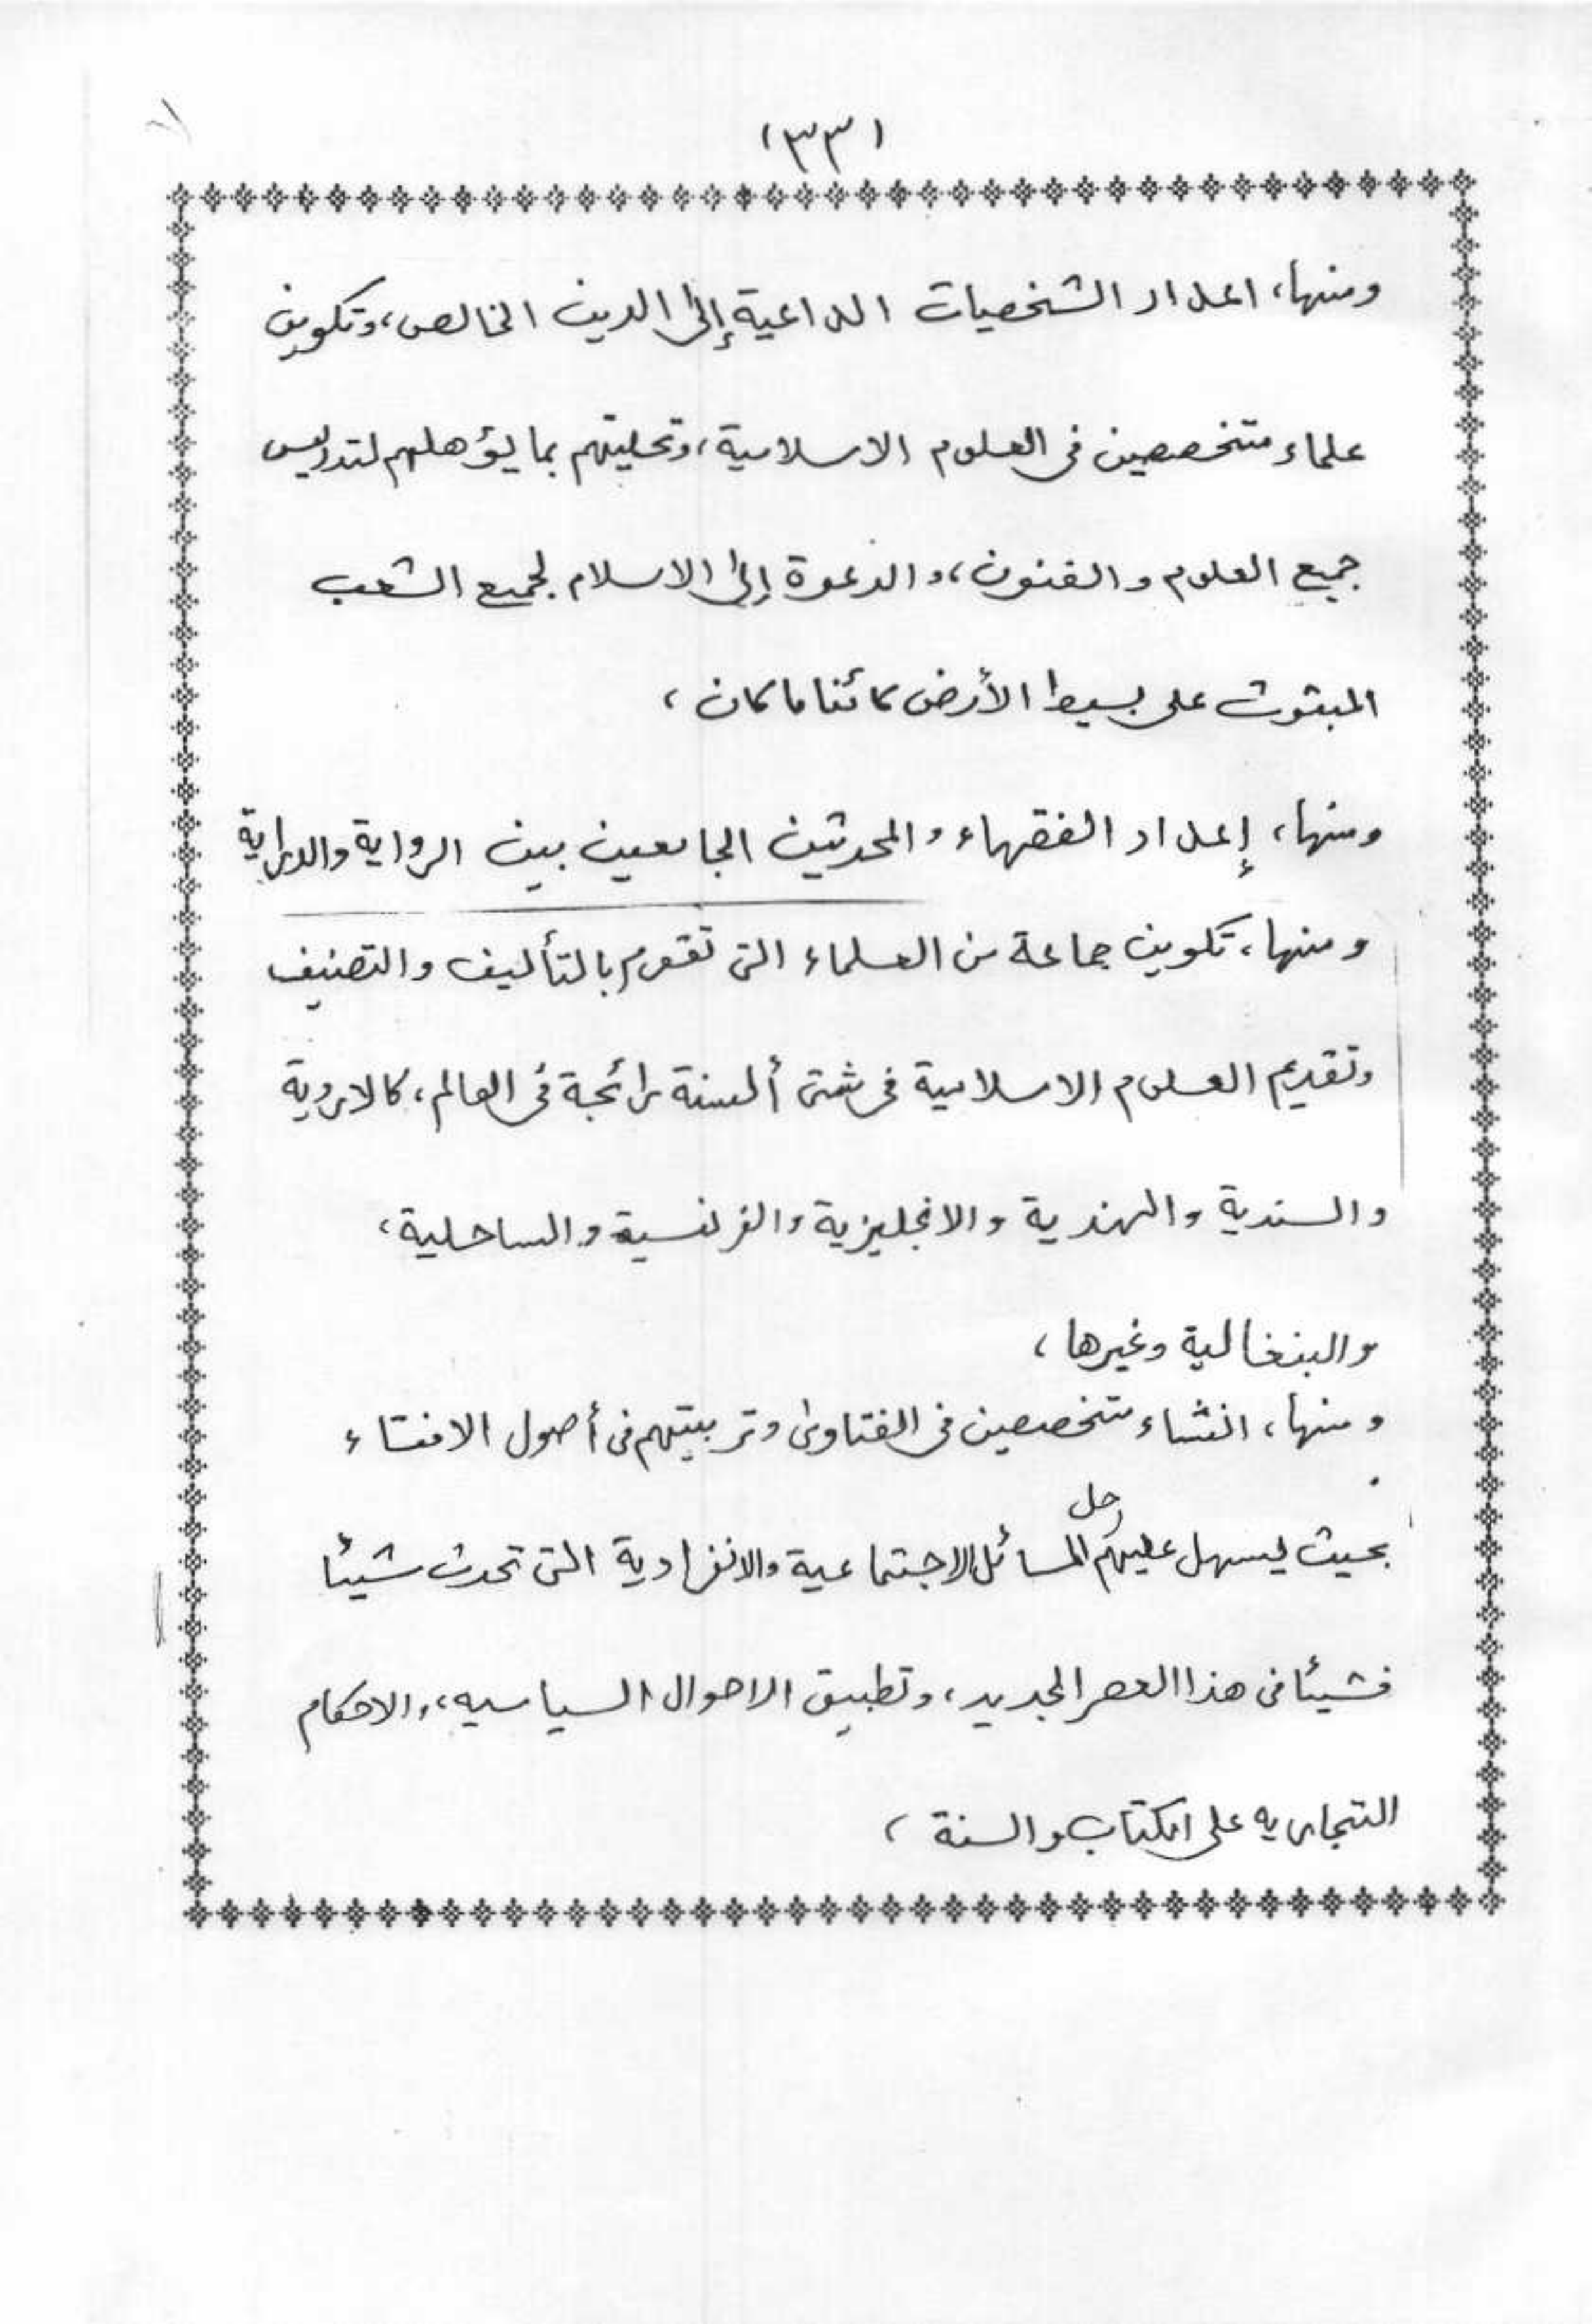 (٣٣)
ومنها، اعداد الشخصيات الداعية إلى الدين الخالص، وتكوين
علماء متخصصين فى العلوم الاسلامية، وتحليتهم بما يؤهلهم لتدريس
جميع العلوم والفنون، والدعوة إلى الاسلام لجميع الشعب
المبثوث على بسيط الأرض كائنا ما كان،
ومنها، إعداد الفقهاء والمحدثين الجامعين بين الرواية والدراية
ومنها، تكوين جماعة من العلماء التى تقوم بالتأليف والتصنيف
وتقديم العلوم الاسلامية فى شتى ألسنة رائجة فى العالم، كالاردية
والسندية والهندية والانجليزية والفرنسية والساحلية،
والبنغالية وغيرها،
ومنها، انشاء متخصصين فى الفتاوى وتربيتهم فى أصول الافتاء
بحيث يسهل عليهم حل المسائل الاجتماعية والانفرادية التى تحدث شيئا
فشيئا فى هذا العصر الجديد، وتطبيق الاحوال السياسيه، والاحكام
التجاريه على الكتاب والسنة،